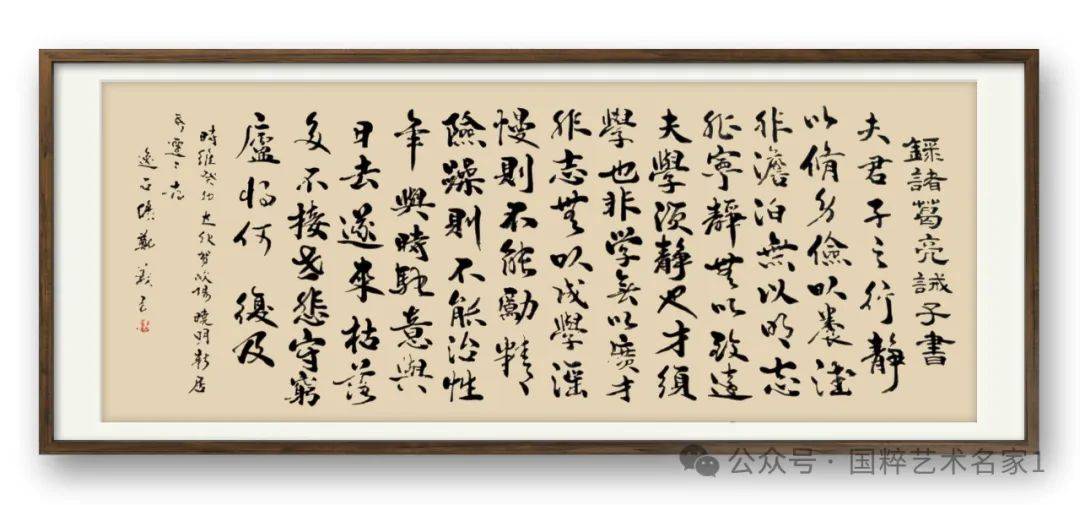 錄諸葛亮誡子書
夫君子之行静
以脩身儉以養德
非澹泊無以明志
非寧靜無以致遠
夫學須靜也才須
學也非学無以廣才
非志無以成學滛
慢則不能勵精
險躁則不能治性
年與時馳意與
日去遂來枯落
多不接世悲守窮
廬將何復及
時維癸卯 曉明新居
公众号·国粹艺术名家1